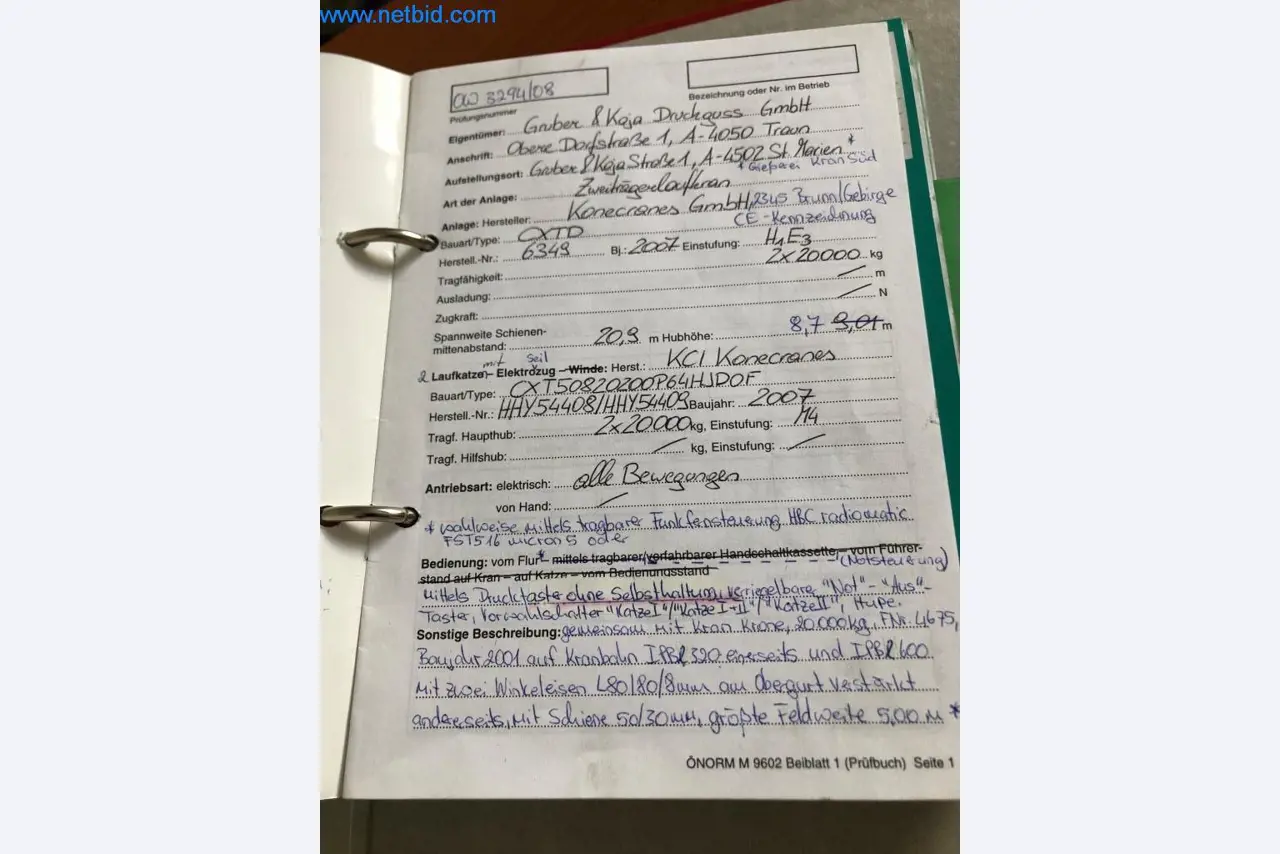 www.netbid.com
CW 3294/08
Prüfungsnummer
Bezeichnung oder Nr. im Betrieb
Eigentümer: Gruber & Kaja Druckguss GmbH
Anschrift: Obere Dorfstraße 1, A-4050 Traun
Aufstellungsort: Gruber & Kaja Straße 1, A-4502 St. Marien *
* Gießerei Kran Süd
Art der Anlage: Zweiträgerlaufkran
Anlage: Hersteller: Konecranes GmbH, 2345 Brunn/Gebirge
CE-Kennzeichnung
Bauart/Type: CXTD
Herstell.-Nr.: 6349 Bj.: 2007 Einstufung: H1E3
Tragfähigkeit: 2x20000 kg
Ausladung: / m
Zugkraft: / N
Spannweite Schienen-
mittenabstand: 20,9 m Hubhöhe: 8,7 9,01 m
mit Seil
2 Laufkatzen – Elektrozug – Winde: Herst.: KCI Konecranes
Bauart/Type: CXT50820200P64HJD0F
Herstell.-Nr.: HHY54408/HHY54409 Baujahr: 2007
Tragf. Haupthub: 2x20000 kg, Einstufung: M4
Tragf. Hilfshub: / kg, Einstufung: /
Antriebsart: elektrisch: alle Bewegungen
von Hand: /
* wahlweise mittels tragbarer Funkfernsteuerung HBC radiomatic
FST516 micron 5 oder
Bedienung: vom Flur * – mittels tragbarer/verfahrbarer Handschaltkassette – vom Führer-
(Notsteuerung)
stand auf Kran – auf Katze – vom Bedienungsstand
mittels Drucktaster ohne Selbsthaltung, verriegelbare "Not"-"Aus"-
Taster, Vorwahlschalter "Katze I"/"Katze I+II"/"Katze II", Hupe.
Sonstige Beschreibung: gemeinsam mit Kran Krone, 20000kg, FNr. 4675,
Baujahr 2001 auf Kranbahn IPBl 320 einerseits und IPBl 600
mit zwei Winkeleisen L80/80/8mm am Obergurt verstärkt
anderseits, mit Schiene 50/30mm, größte Feldweite 5,00 m *
ÖNORM M 9602 Beiblatt 1 (Prüfbuch) Seite 1